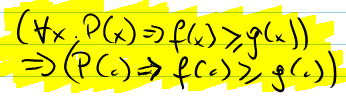 (∀x. P(x) ⇒ f(x) ⩾ g(x))
⇒ (P(c) ⇒ f(c) ⩾ g(c))